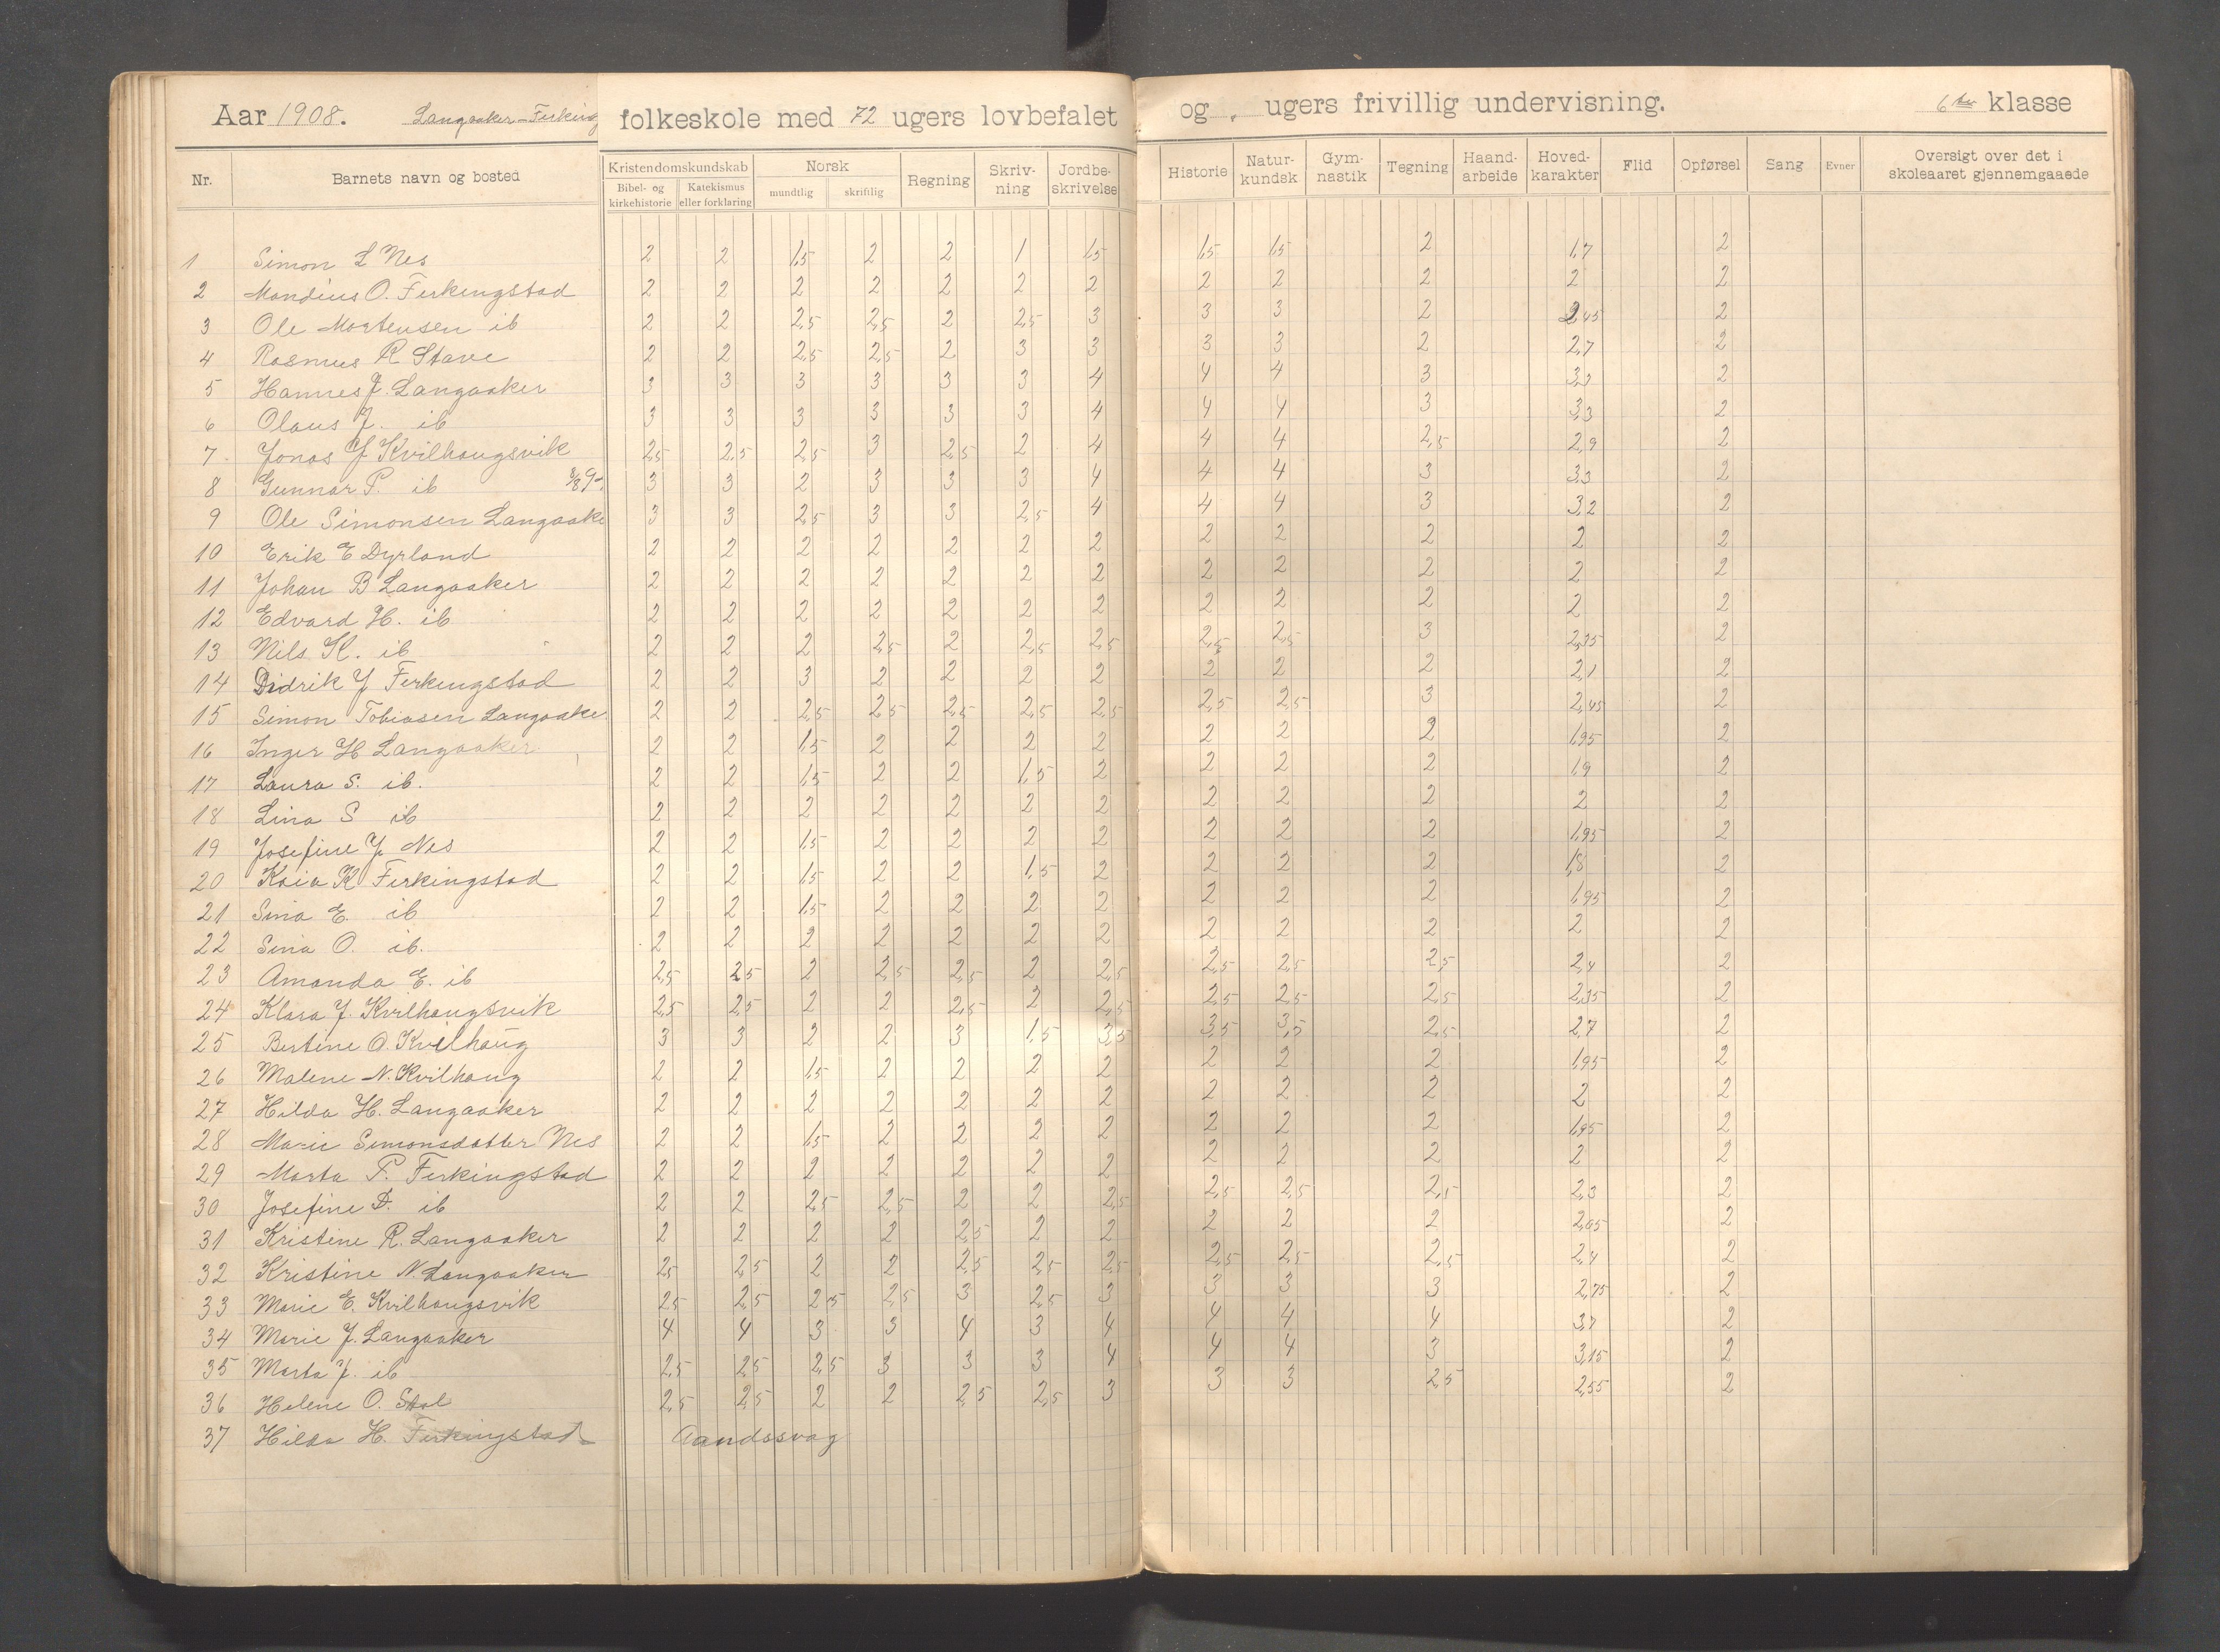 Aar 1908. Langaaker-Ferking folkeskole med 72 ugers lovbefalet og , ugers frivillig undervisning. 6te klasse
Nr. Barnets navn og bosted Kristendomskundskab Norsk Regning Skriv-ning Jordbe-skrivelse Historie Natur-kundsk Gym-nastik Tegning Haand-arbeide Hoved-karakter Flid Opførsel Sang Evner Oversigt over det i skoleaaret gjennemgaaede
Bibel- og kirkehistorie Katekismus eller forklaring mundtlig skriftlig
1 Simon L Nes 2 2 1,5 2 2 1 1,5 1,5 1,5 2 1,7 2
2 Mandius O. Ferkingstad 2 2 2 2 2 2 2 2 2 2 2 2
3 Ole Mortensen ib 2 2 2,5 2,5 2 2,5 3 3 3 2 2,45 2
4 Rasmus R Stave 2 2 2,5 2,5 2 3 3 3 3 2 2,7 2
5 Hannes J. Langaaker 3 3 3 3 3 3 4 4 4 3 3,3 2
6 Olaus J. ib 3 3 3 3 3 3 4 4 4 3 3,3 2
7 Jonas J Kvilhaugsvik 2,5 2,5 2,5 3 2,5 2 4 4 4 2,5 2,9 2
8 Gunnar P. ib 3 3 2 3 3 3 4 4 4 3 3,3 2
9 Ole Simonsen Langaake 3 3 2,5 3 3 2,5 4 4 4 3 3,2 2
10 Erik E Dyrland 2 2 2 2 2 2 2 2 2 2 2 2
11 Johan B Langaaker 2 2 2 2 2 2 2 2 2 2 2 2
12 Edvard H. ib 2 2 2 2 2 2 2 2 2 2 2 2
13 Nils K. ib 2 2 2 2,5 2 2,5 2,5 2,5 2,5 3 2,35 2
14 Didrik J Ferkingstad 2 2 3 2 2 2 2 2 2 2 2,1 2
15 Simon Tobiasen Langaake. 2 2 2,5 2,5 2,5 2,5 2,5 2,5 2,5 3 2,45 2
16 Inger H Langaaker 2 2 1,5 2 2 2 2 2 2 2 1,95 2
17 Laura S. ib. 2 2 1,5 2 2 1,5 2 2 2 2 1,9 2
18 Lina S ib 2 2 2 2 2 2 2 2 2 2 2 2
19 Josefine J. Nes 2 2 1,5 2 2 2 2 2 2 2 1,95 2
20 Kaia K Ferkingstad 2 2 1,5 2 2 1,5 2 2 2 2 1,8 2
21 Sina E. ib 2 2 1,5 2 2 2 2 2 2 2 1,95 2
22 Sina O. ib. 2 2 2 2 2 2 2 2 2 2 2 2
23 Amanda E. ib 2,5 2,5 2 2,5 2,5 2 2,5 2,5 2,5 2,5 2,4 2
24 Klara J. Kvilhaugsvik 2,5 2,5 2 2 2,5 2 2,5 2,5 2,5 2,5 2,35 2
25 Bertine O. Kvilhaug 3 3 2 2 3 1,5 3,5 3,5 3,5 2,5 2,7 2
26 Malene N. Kvilhaug 2 2 1,5 2 2 2 2 2 2 2 1,95 2
27 Hilda H. Langaaker 2 2 2 2 2 2 2 2 2 2 2 2
28 Marie Simonsdatter Nes 2 2 1,5 2 2 2 2 2 2 2 1,95 2
29 Marta P. Ferkingstad 2 2 2 2 2 2 2 2 2 2 2 2
30 Josefine D. ib 2 2 2,5 2,5 2 2 2,5 2,5 2,5 2,5 2,3 2
31 Kristine R. Langaaker 2 2 2 2 2,5 2 2 2 2 2 2,05 2
32 Kristine N. Langaaker 2,5 2,5 2 2 2,5 2,5 2,5 2,5 2,5 2,5 2,4 2
33 Marie E. Kvilhaugsvik 2,5 2,5 2,5 2,5 3 2,5 3 3 3 3 2,75 2
34 Marie J. Langaaker 4 4 3 3 4 3 4 4 4 4 3,7 2
35 Marta J. ib 2,5 2,5 2,5 3 3 3 4 4 4 3 3,15 2
36 Helene O. Stol 2,5 2,5 2 2 2,5 2,5 3 3 3 2,5 2,55 2
37 Hilda H. Ferkingstad Aandssvag